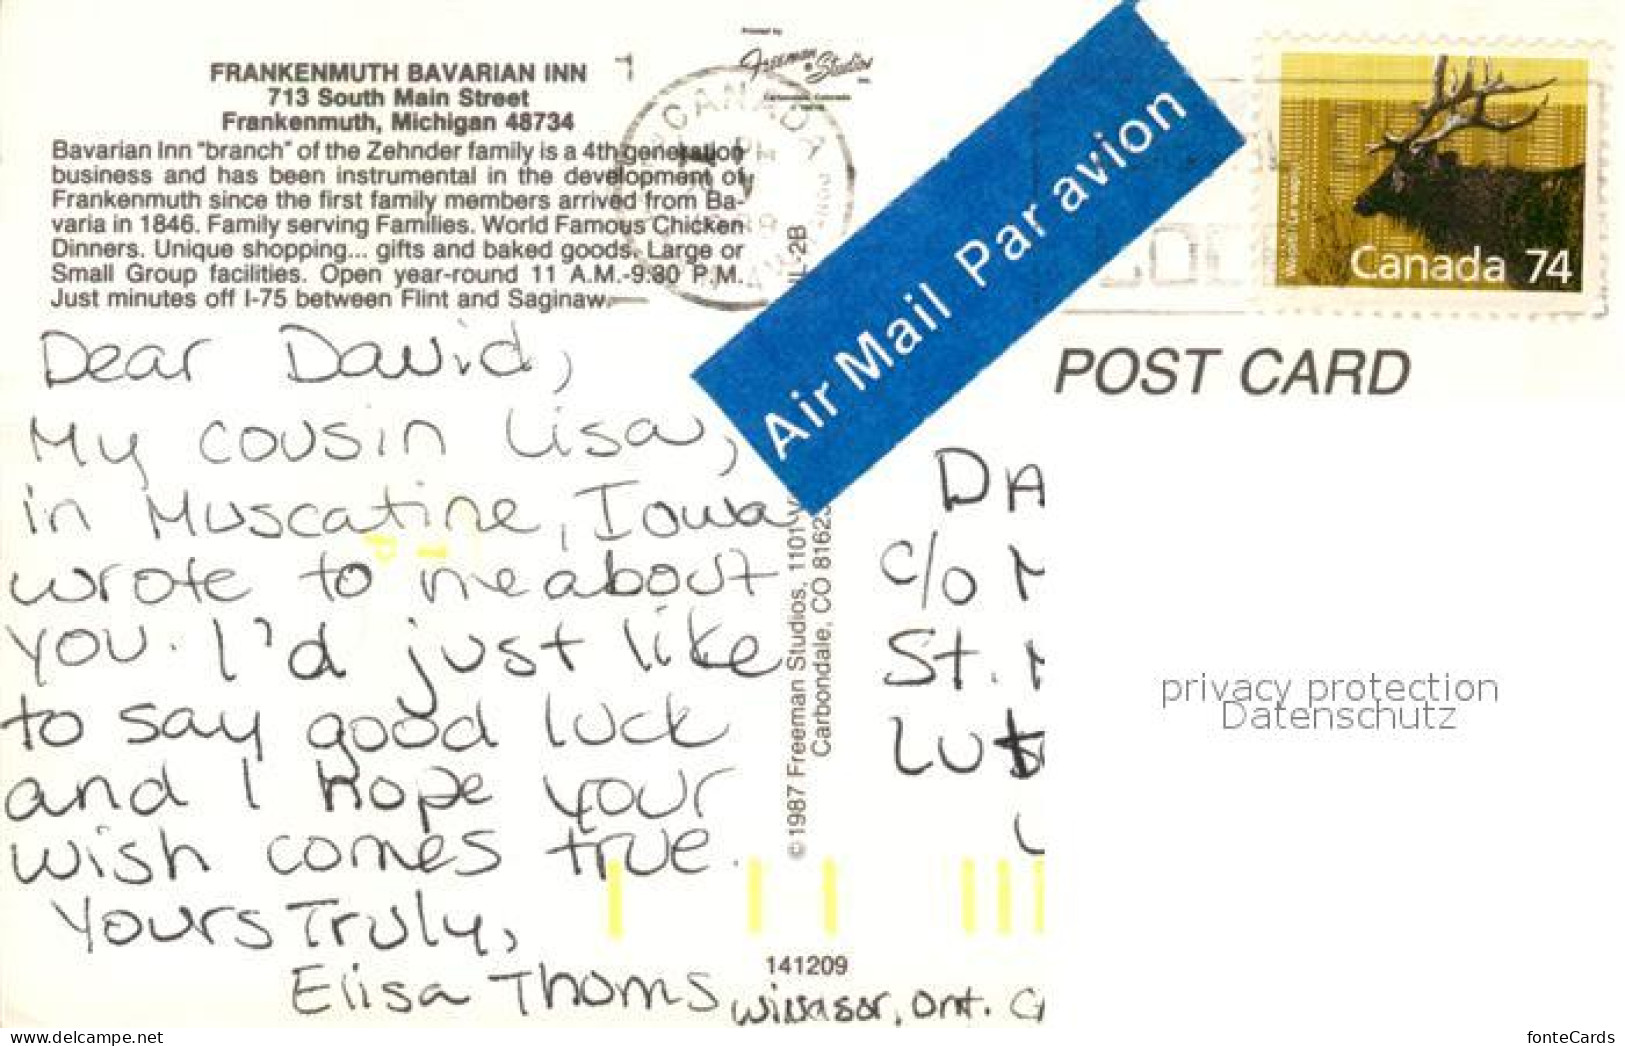 FRANKENMUTH BAVARIAN INN
713 South Main Street
Frankenmuth, Michigan 48734
Bavarian Inn "branch" of the Zehnder family is a 4th generation
business and has been instrumental in the development of
Frankenmuth since the first family members arrived from Ba-
varia in 1846. Family serving Families. World Famous Chicken
Dinners. Unique shopping... gifts and baked goods. Large or
Small Group facilities. Open year-round 11 A.M.-9:30 P.M.
Just minutes off I-75 between Flint and Saginaw.
Printed by
Freeman Studios
CANADA
Air Mail Par avion
Canada 74
POST CARD
Dear David,
My cousin Lisa,
in Muscatine, Iowa
wrote to me about
you. I'd just like
to say good luck
and I hope your
wish comes true.
Yours Truly,
Elisa Thoms
Windsor, Ont. CA
© 1987 Freeman Studios, 1101
Carbondale, CO 81623
IL-2B
DA
c/o M
St.
Lut
privacy protection
Datenschutz
141209
www.ansichtskarten-center.de
fonteCards